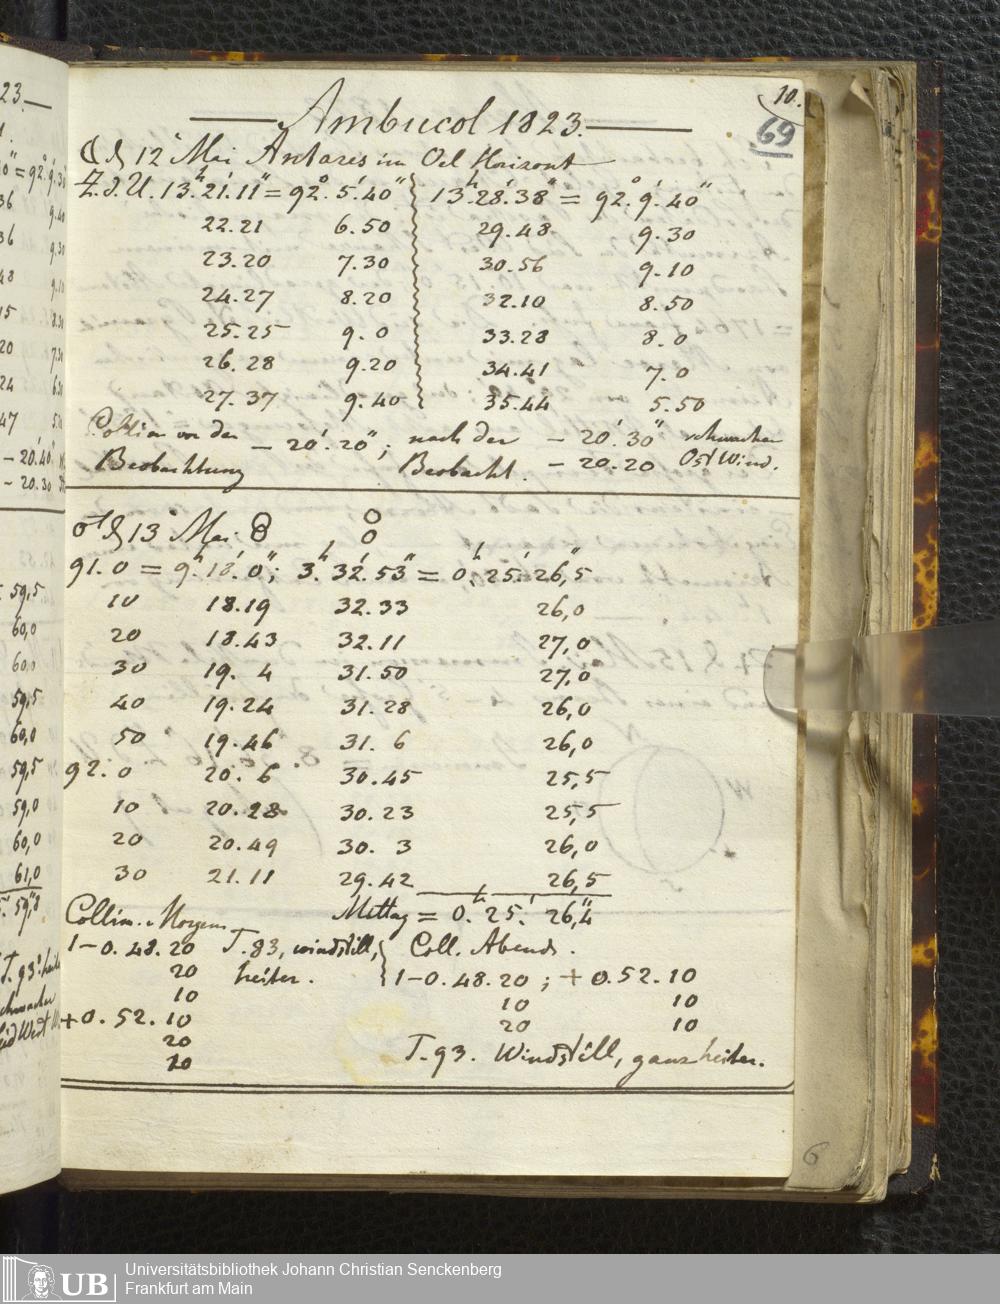 10.
69
Ambucol 1823.
☾ d 12t Mai Antares im Oel Horizont
Z.d.U. 13.h21.'11" = 92°. 5.'40" 13.h28.'38" = 92.°9.'40"
22.21 6.50 29.48 9.30
23.20 7.30 30.56 9.10
24.27 8.20 32.10 8.50
25.25 9.0 33.28 8.0
26.28 9.20 34.41 7.0
27.37 9.40 35.44 5.50
Collim vor der Beobachtung – 20.'20"; nach der Beobacht. – 20.'30" schwacher
– 20.20 Ost Wind.
♂ d 13t Mai
91.0 = 9.h18.'0"; 3.h32.'53" = 0.h25.'26,"5
10 18.19 32.33 26,0
20 18.43 32.11 27,0
30 19.4 31.50 27,0
40 19.24 31.28 26,0
50 19.46 31.6 26,0
92.0 20.6 30.45 25,5
10 20.28 30.23 25,5
20 20.49 30.3 26,0
30 21.11 29.42 26,5
Collim. Morgens Mittag = 0.h25.'26,"4
1–0.48.20 T.83, windstill, Coll. Abends.
20 heiter. 1–0.48.20; +0.52.10
10 10 10
+0.52.10 20 10
20 T.93. Windstill, ganz heiter.
20
6
UB Universitätsbibliothek Johann Christian Senckenberg
Frankfurt am Main